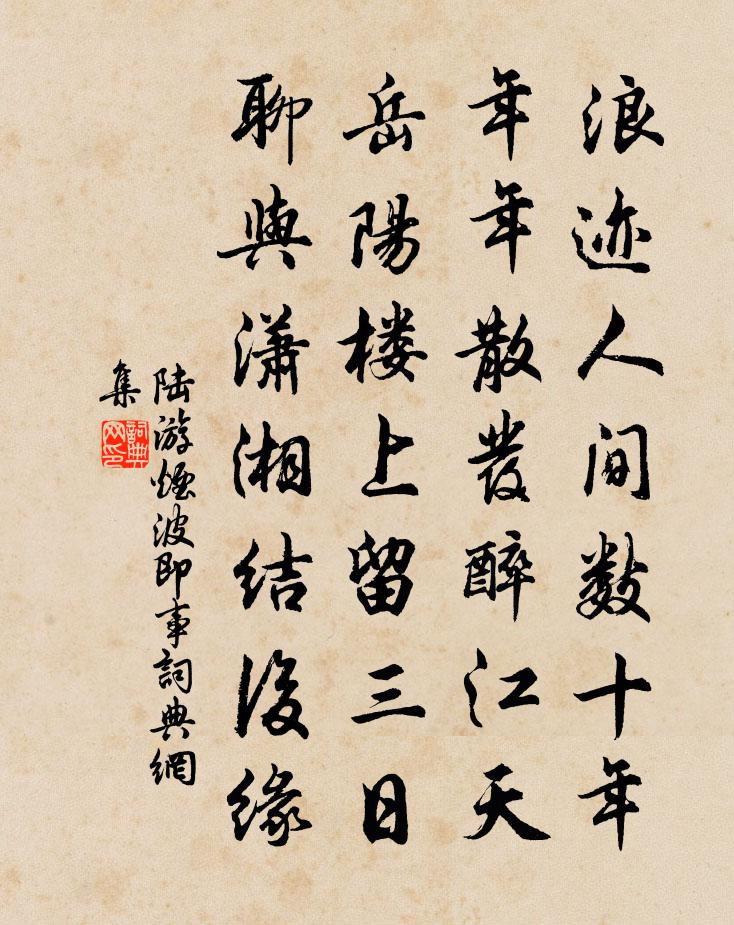 浪迹人间数十年
年年散發醉江天
岳陽楼上留三日
聊與瀟湘结後缘
陆游煙波即事詞典網
集
詞典
网印